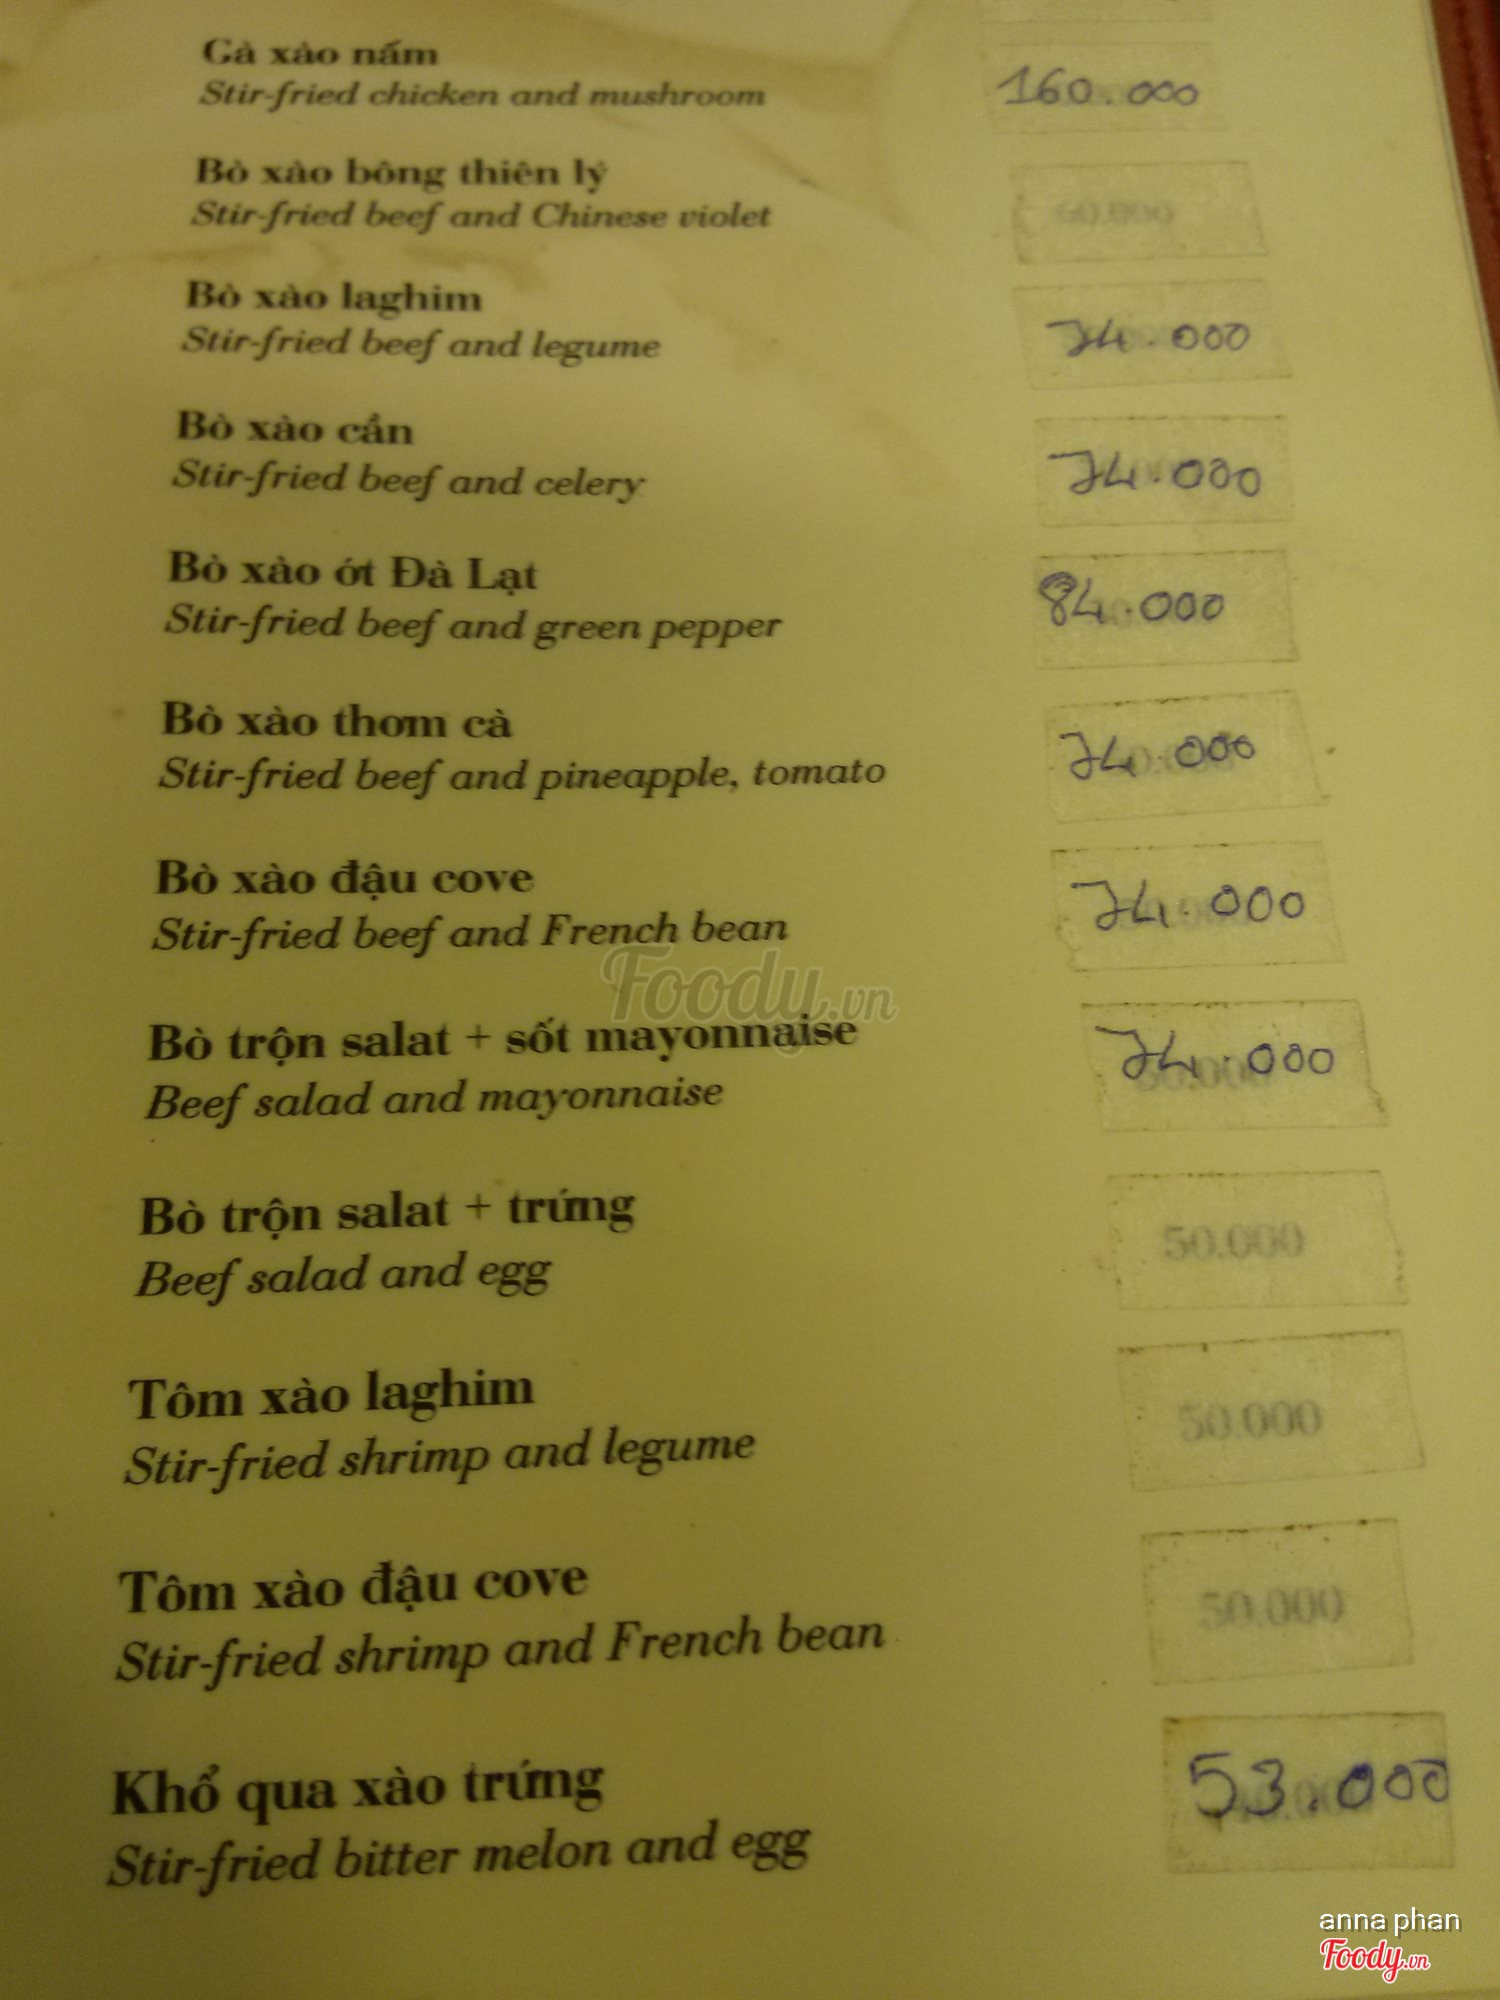 Gà xào nấm
Stir-fried chicken and mushroom
160.000
Bò xào bông thiên lý
Stir-fried beef and Chinese violet
60.000
Bò xào laghim
Stir-fried beef and legume
74.000
Bò xào cần
Stir-fried beef and celery
74.000
Bò xào ớt Đà Lạt
Stir-fried beef and green pepper
84.000
Bò xào thơm cà
Stir-fried beef and pineapple, tomato
74.000
Bò xào đậu cove
Stir-fried beef and French bean
74.000
Foody.vn
Bò trộn salat + sốt mayonnaise
Beef salad and mayonnaise
74.000
Bò trộn salat + trứng
Beef salad and egg
50.000
Tôm xào laghim
Stir-fried shrimp and legume
50.000
Tôm xào đậu cove
Stir-fried shrimp and French bean
50.000
Khổ qua xào trứng
Stir-fried bitter melon and egg
53.000
anna phan
Foody.vn